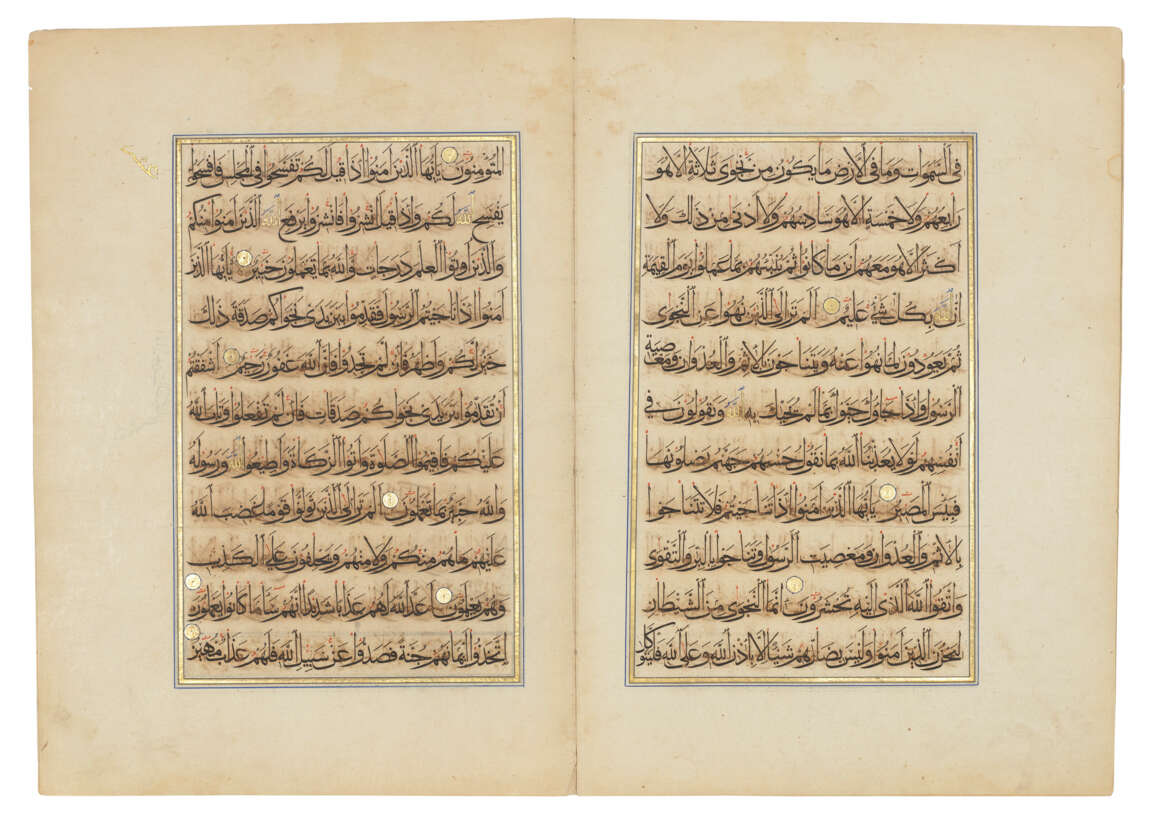 في السموات وما في الأرض ما يكون من نجوى ثلاثة إلا هو
رابعهم ولا خمسة إلا هو سادسهم ولا أدنى من ذلك ولا
أكثر إلا هو معهم أين ما كانوا ثم ينبئهم بما عملوا يوم القيمة
إن الله بكل شيء عليم ألم تر إلى الذين نهوا عن النجوى
ثم يعودون لما نهوا عنه ويتناجون بالإثم والعدوان ومعصية
الرسول وإذا جاؤك حيوك بما لم يحيك به الله ويقولون في
أنفسهم لولا يعذبنا الله بما نقول حسبهم جهنم يصلونها
فبئس المصير يأيها الذين آمنوا إذا تناجيتم فلا تتناجوا
بالإثم والعدوان ومعصيت الرسول وتناجوا بالبر والتقوى
واتقوا الله الذي إليه تحشرون إنما النجوى من الشيطان
ليحزن الذين آمنوا وليس بضارهم شيئا إلا بإذن الله وعلى الله فليتوكل
المؤمنون يأيها الذين آمنوا إذا قيل لكم تفسحوا في المجلس فافسحوا
يفسح الله لكم وإذا قيل انشزوا فانشزوا يرفع الله الذين آمنوا منكم
والذين أوتوا العلم درجات والله بما تعملون خبير يأيها الذين
آمنوا إذا ناجيتم الرسول فقدموا بين يدي نجواكم صدقة ذلك
خير لكم وأطهر فإن لم تجدوا فإن الله غفور رحيم أأشفقتم
أن تقدموا بين يدي نجواكم صدقات فإن لم تفعلوا وتاب الله
عليكم فأقيموا الصلوة وآتوا الزكاة وأطيعوا الله ورسوله
والله خبير بما تعملون ألم تر إلى الذين تولوا قوما غضب الله
عليهم ما هم منكم ولا منهم ويحلفون على الكذب
وهم يعلمون أعد الله لهم عذابا شديدا إنهم ساء ما كانوا يعملون
اتخذوا أيمانهم جنة فصدوا عن سبيل الله فلهم عذاب مهين